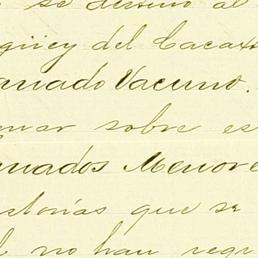 se destinó al
güey del Cacax
anado Vacuno.
mar sobre es
anados Menore
storias que se
no han regr